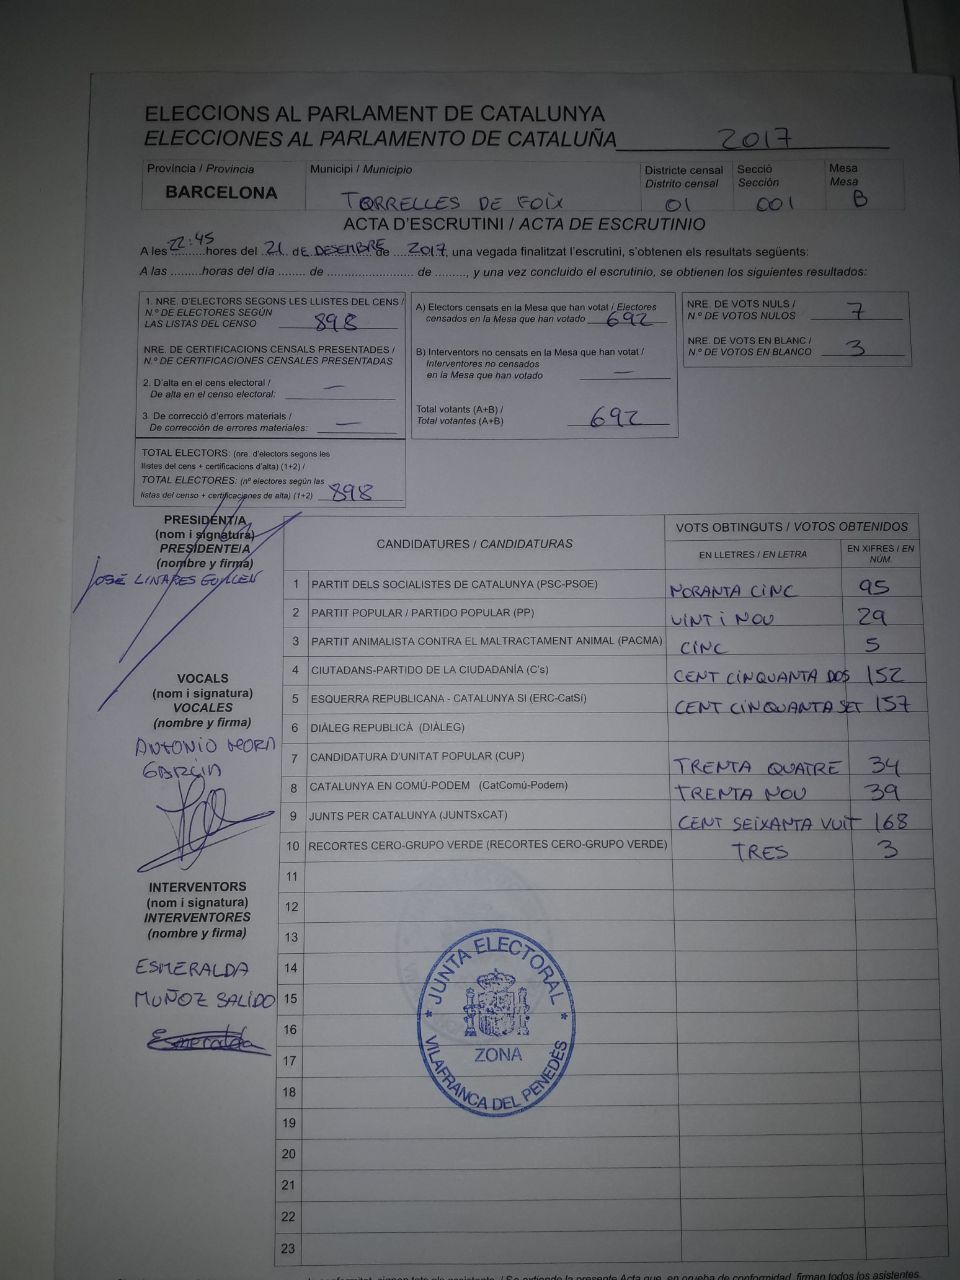 ELECCIONS AL PARLAMENT DE CATALUNYA
ELECCIONES AL PARLAMENTO DE CATALUÑA 2017
Província / Provincia
BARCELONA
Municipi / Municipio
TORRELLES DE FOIX
Districte censal
Distrito censal
01
Secció
Sección
001
Mesa
Mesa
B
ACTA D'ESCRUTINI / ACTA DE ESCRUTINIO
A les 22:45 hores del 21 de DESEMBRE de 2017, una vegada finalitzat l'escrutini, s'obtenen els resultats següents:
A las .........horas del día ........ de ......................... de ........., y una vez concluido el escrutinio, se obtienen los siguientes resultados:
1. NRE. D'ELECTORS SEGONS LES LLISTES DEL CENS /
N.º DE ELECTORES SEGÚN
LAS LISTAS DEL CENSO 898
NRE. DE CERTIFICACIONS CENSALS PRESENTADES /
N.º DE CERTIFICACIONES CENSALES PRESENTADAS
2. D'alta en el cens electoral /
De alta en el censo electoral: —
3. De correcció d'errors materials /
De corrección de errores materiales: —
TOTAL ELECTORS: (nre. d'electors segons les
llistes del cens + certificacions d'alta) (1+2) /
TOTAL ELECTORES: (nº electores según las
listas del censo + certificaciones de alta) (1+2) 898
A) Electors censats en la Mesa que han votat / Electores
censados en la Mesa que han votado 692
B) Interventors no censats en la Mesa que han votat /
Interventores no censados
en la Mesa que han votado —
Total votants (A+B) /
Total votantes (A+B) 692
NRE. DE VOTS NULS /
N.º DE VOTOS NULOS 7
NRE. DE VOTS EN BLANC /
N.º DE VOTOS EN BLANCO 3
PRESIDENT/A
(nom i signatura)
PRESIDENTE/A
(nombre y firma)
JOSÉ LINARES GUILLEN
VOCALS
(nom i signatura)
VOCALES
(nombre y firma)
ANTONIO MORA
GARCIA
INTERVENTORS
(nom i signatura)
INTERVENTORES
(nombre y firma)
ESMERALDA
MUÑOZ SALIDO
Esmeralda
CANDIDATURES / CANDIDATURAS
VOTS OBTINGUTS / VOTOS OBTENIDOS
EN LLETRES / EN LETRA
EN XIFRES / EN
NÚM.
1 PARTIT DELS SOCIALISTES DE CATALUNYA (PSC-PSOE) NORANTA CINC 95
2 PARTIT POPULAR / PARTIDO POPULAR (PP) VINT I NOU 29
3 PARTIT ANIMALISTA CONTRA EL MALTRACTAMENT ANIMAL (PACMA) CINC 5
4 CIUTADANS-PARTIDO DE LA CIUDADANÍA (C's) CENT CINQUANTA DOS 152
5 ESQUERRA REPUBLICANA - CATALUNYA SI (ERC-CatSí) CENT CINQUANTA SET 157
6 DIÀLEG REPUBLICÀ (DIÀLEG)
7 CANDIDATURA D'UNITAT POPULAR (CUP) TRENTA QUATRE 34
8 CATALUNYA EN COMÚ-PODEM (CatComú-Podem) TRENTA NOU 39
9 JUNTS PER CATALUNYA (JUNTSxCAT) CENT SEIXANTA VUIT 168
10 RECORTES CERO-GRUPO VERDE (RECORTES CERO-GRUPO VERDE) TRES 3
11
12
13
14
15
16
17
18
19
20
21
22
23
* JUNTA ELECTORAL *
ZONA
VILAFRANCA DEL PENEDÈS
/ Se extiende la presente Acta que, en prueba de conformidad, firman todos los asistentes.